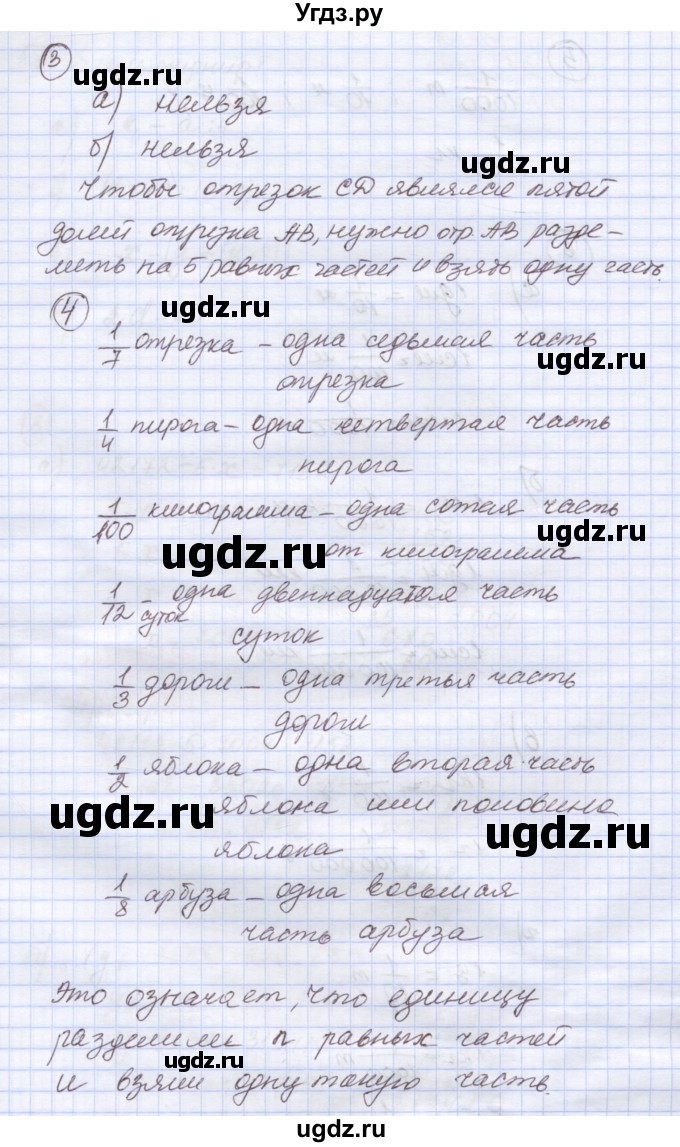 Угдз.ру
3
ugdz.ru
а) нельзя
б) нельзя
ugdz.ru
Чтобы отрезок CD являлся пятой
долей отрезка AB, нужно отр. AB разде-
лить на 5 равных частей и взять одну часть.
4
ugdz.ru
1/7 отрезка – одна седьмая часть
ugdz.ru
отрезка
1/4 пирога – одна четвертая часть
пирога
1/100 килограмма – одна сотая часть
ugdz.ru
ugdz.ru
от килограмма
1/12 суток – одна двеннадцатая часть
суток
1/3 дороги – одна третья часть
дороги
1/2 яблока – одна вторая часть
ugdz.ru
яблока или половина
ugdz.ru
яблока
1/8 арбуза – одна восьмая
часть арбуза
Это означает, что единицу
разделили n равных частей
ugdz.ru
и взяли одну такую часть.